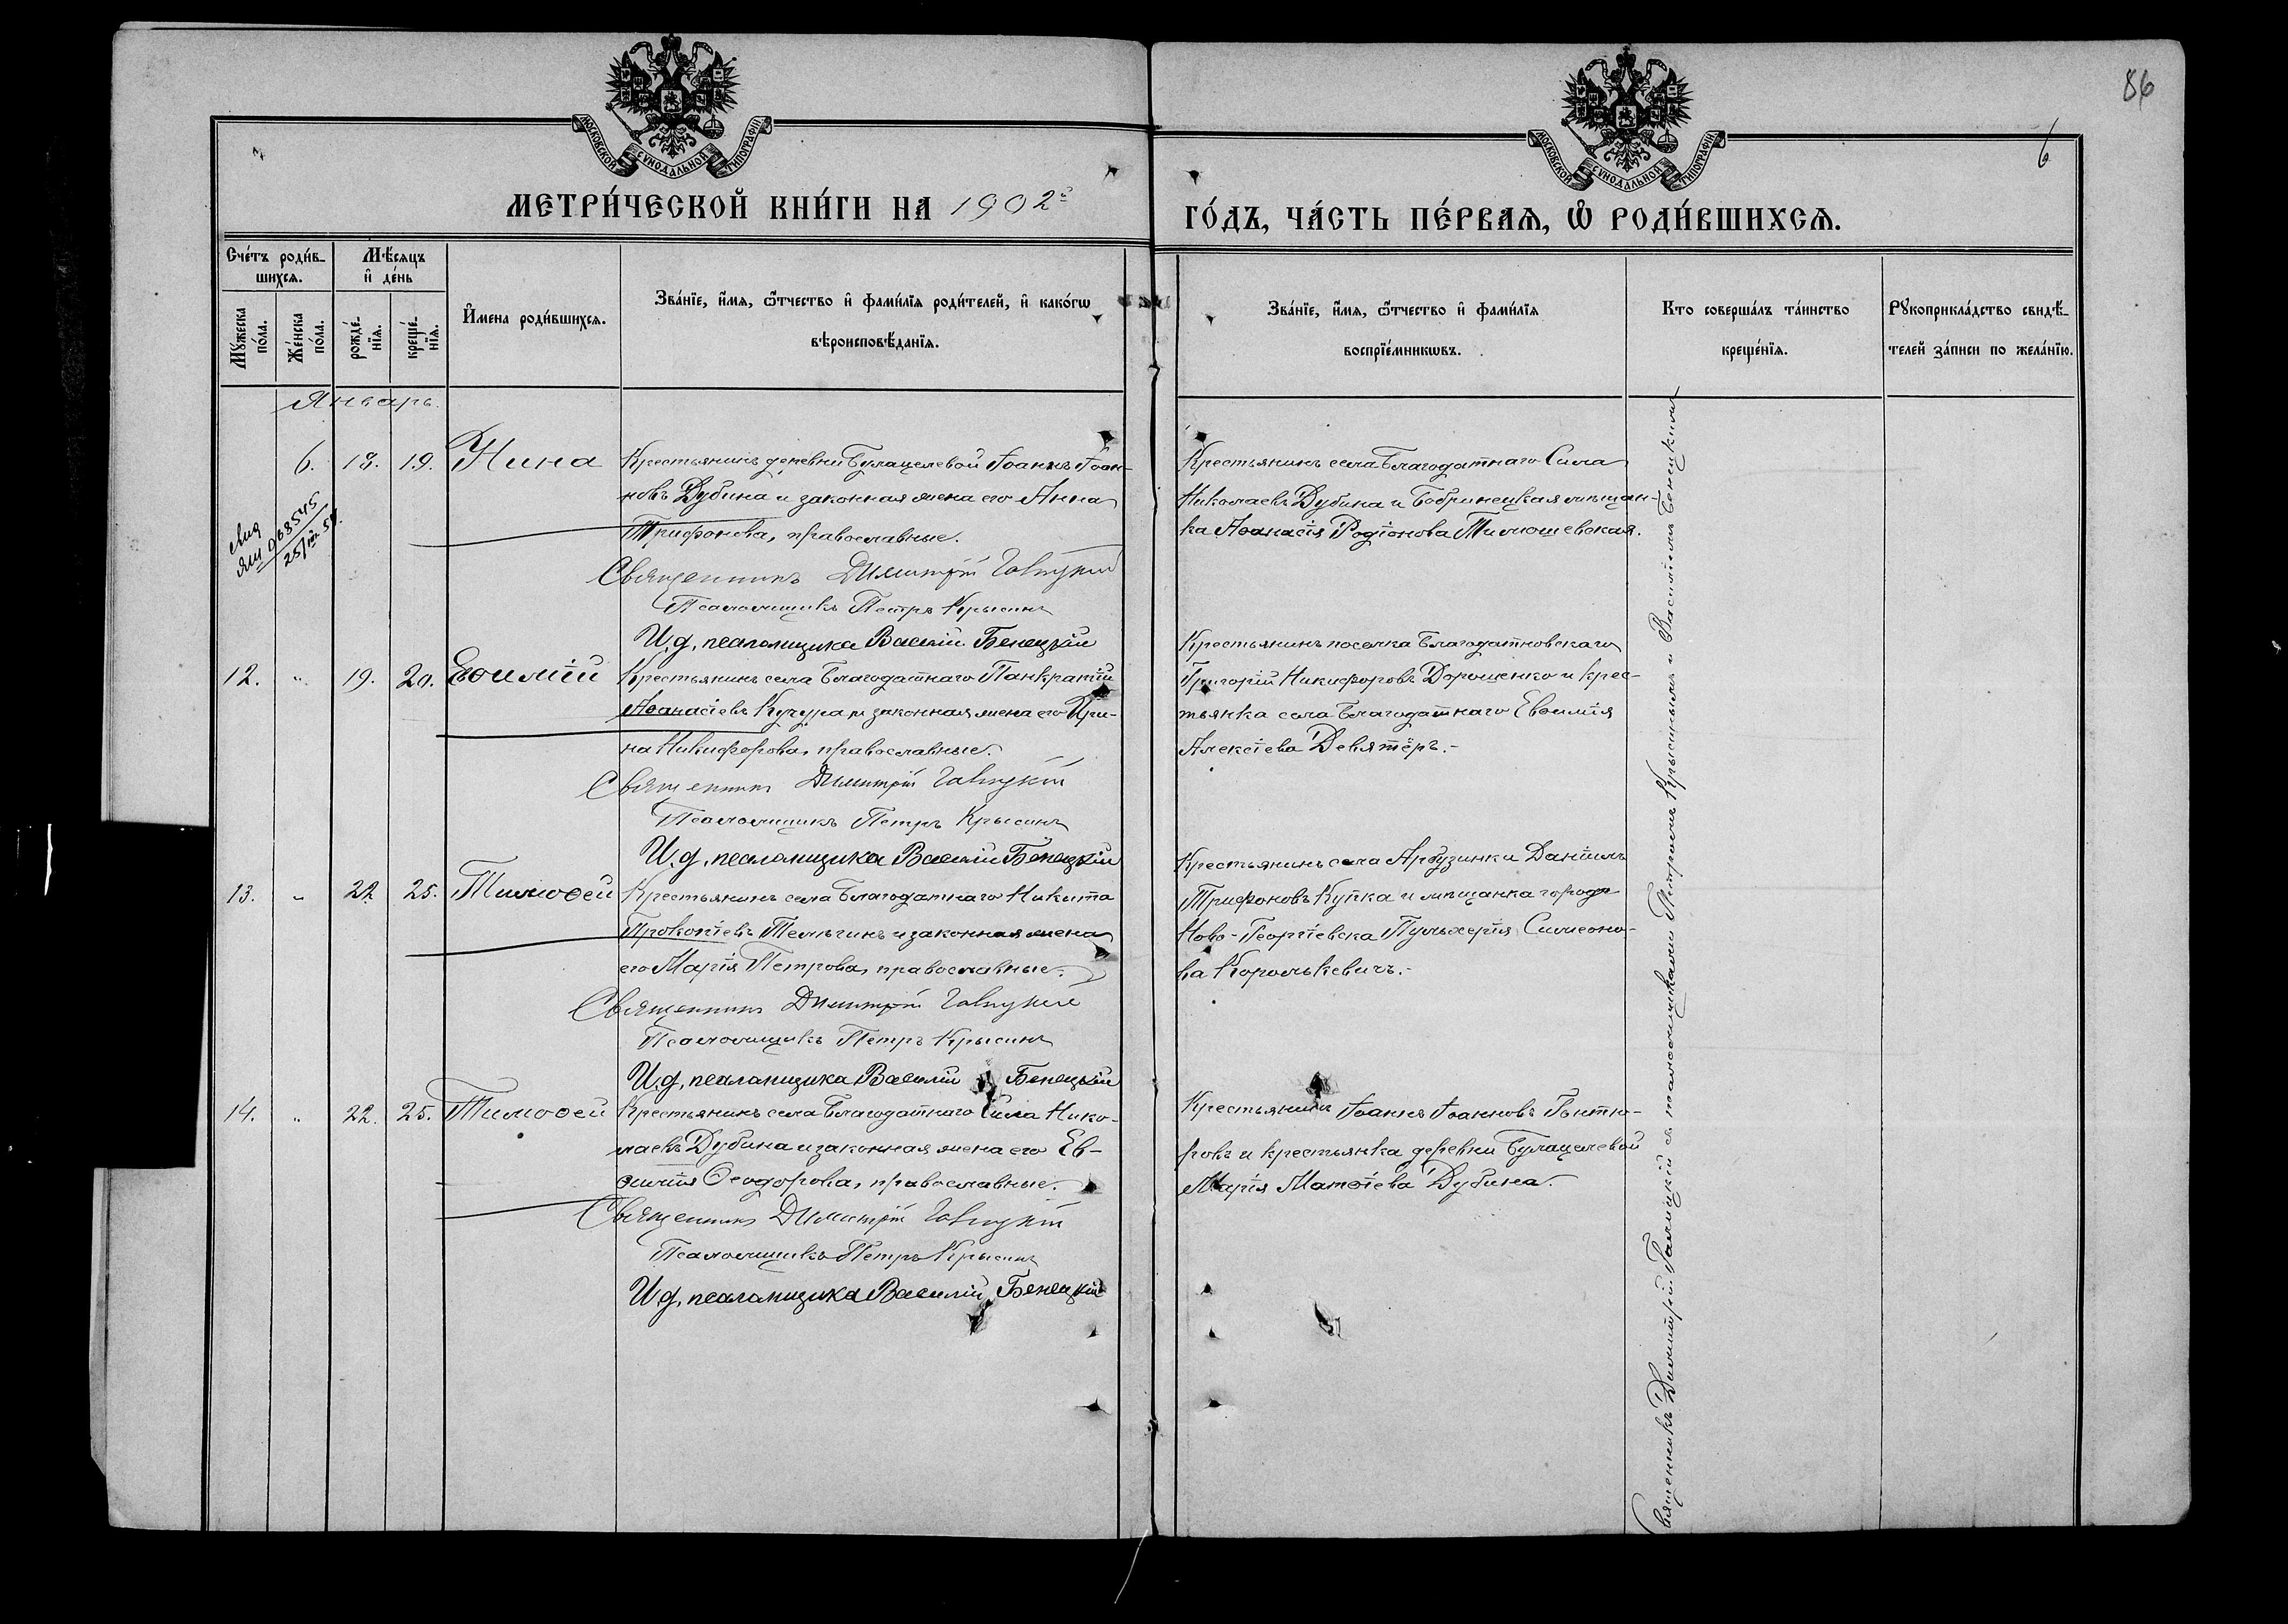 86
6
МОСКОВСКОЙ СѴНОДАЛЬНОЙ ТИПОГРАФІИ
МОСКОВСКОЙ СѴНОДАЛЬНОЙ ТИПОГРАФІИ
МЕТРИ́ЧЕСКОЙ КНИ́ГИ НА 1902й
ГО́ДЪ, ЧА́СТЬ ПЕ́РВАЯ, Ѡ РОДИ́ВШИХСЯ.
Сче́тъ роди́в-
шихся.
Мѣ́сяцъ
и҆ де́нь
Мꙋ́жеска по́ла.
Же́нска по́ла.
рожде́-
нїя.
креще́-
нїя.
И҆мена роди́вшихся.
Зва́нїе, и҆́мя, ѻ҆́тчество и҆ фами́лїя роди́телей, и҆ како́гѡ
вѣроисповѣ́данїя.
Зва́нїе, и҆́мя, ѻ҆́тчество и҆ фами́лїя
воспрїе́мникѡвъ.
Кто соверша́лъ та́инство
креще́нїя.
Рꙋкоприкла́дство свидѣ́-
телей за́писи по жела́нїю.
Январь.
6. 18. 19. Нина
Крестьянинъ деревни Булацелевой Іоаннъ Іоан-
новъ Дубина и законная жена его Анна
Трифонова, православные.
Священникъ Димитрій Галицкій
Псаломщикъ Петръ Крысинъ
И. д. псаломщика Василій Бенецкій
Крестьянинъ села Благодатнаго Сила
Николаевъ Дубина и Бобринецкая мѣщан-
ка Аѳанасія Родіонова Тимошевская.
968545
12. " 19. 20. Еѳимій
Крестьянинъ села Благодатнаго Панкратій
Аѳанасіевъ Кучура и законная жена его Ири-
на Никифорова, православные.
Священникъ Димитрій Галицкій
Псаломщикъ Петръ Крысинъ
И. д. псаломщика Василій Бенецкій
Крестьянинъ поселка Благодатновскаго
Григорій Никифоровъ Дорошенко и крес-
тьянка села Благодатнаго Евѳимія
Алексіева Девятёръ.-
13. " 22 25. Тимоѳей
Крестьянинъ села Благодатнаго Никита
Прокопіевъ Телыгинъ и законная жена
его Марія Петрова, православные.
Священникъ Димитрій Галицкій
Псаломщикъ Петръ Крысинъ
И. д. псаломщика Василій Бенецкій
Крестьянинъ села Арбузинки Даніилъ
Трифоновъ Купка и мѣщанка города
Ново-Георгіевска Пульхерія Симеоно-
ва Королькевичъ.-
14. " 22. 25. Тимоѳей
Крестьянинъ села Благодатнаго Сила Нико-
лаевъ Дубина и законная жена его Ев-
ѳимія Ѳеодорова, православные.
Священникъ Димитрій Галицкій
Псаломщикъ Петръ Крысинъ
И. д. псаломщика Василій Бенецкій
Крестьянинъ Іоаннъ Іоанновъ
и крестьянка деревни Булацелевой
Марія Матѳіева Дубина.
Священникъ Димитрій Галицкій съ псаломщиками Петромъ Крысинымъ и Василіемъ Бенецкимъ